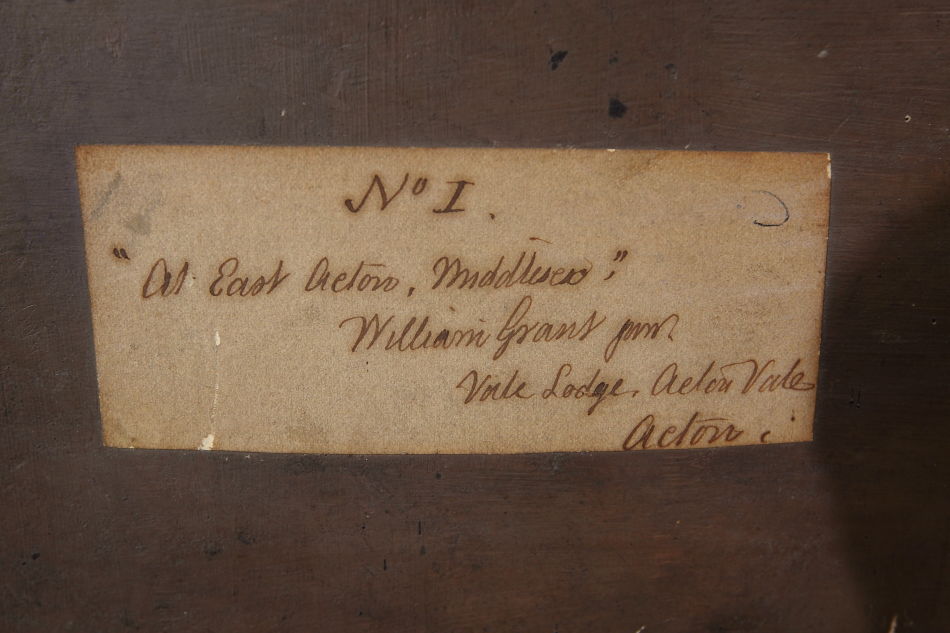 No I.
"At East Acton, Middlesex"
William Grant junr.
Vale Lodge. Acton Vale
Acton.